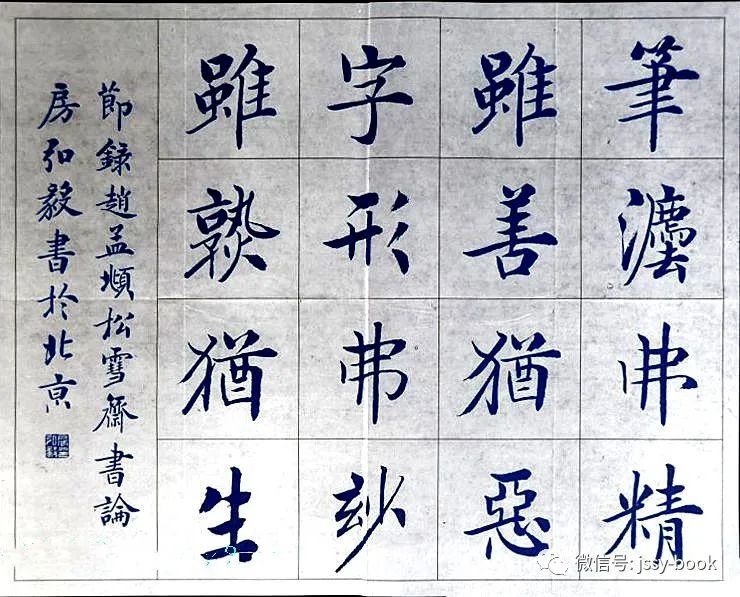 筆灋弗精
雖善猶惡
字形弗玅
雖孰猶生
節錄趙孟頫松雪齋書論
房弘毅書於北京
微信号: jssy-book